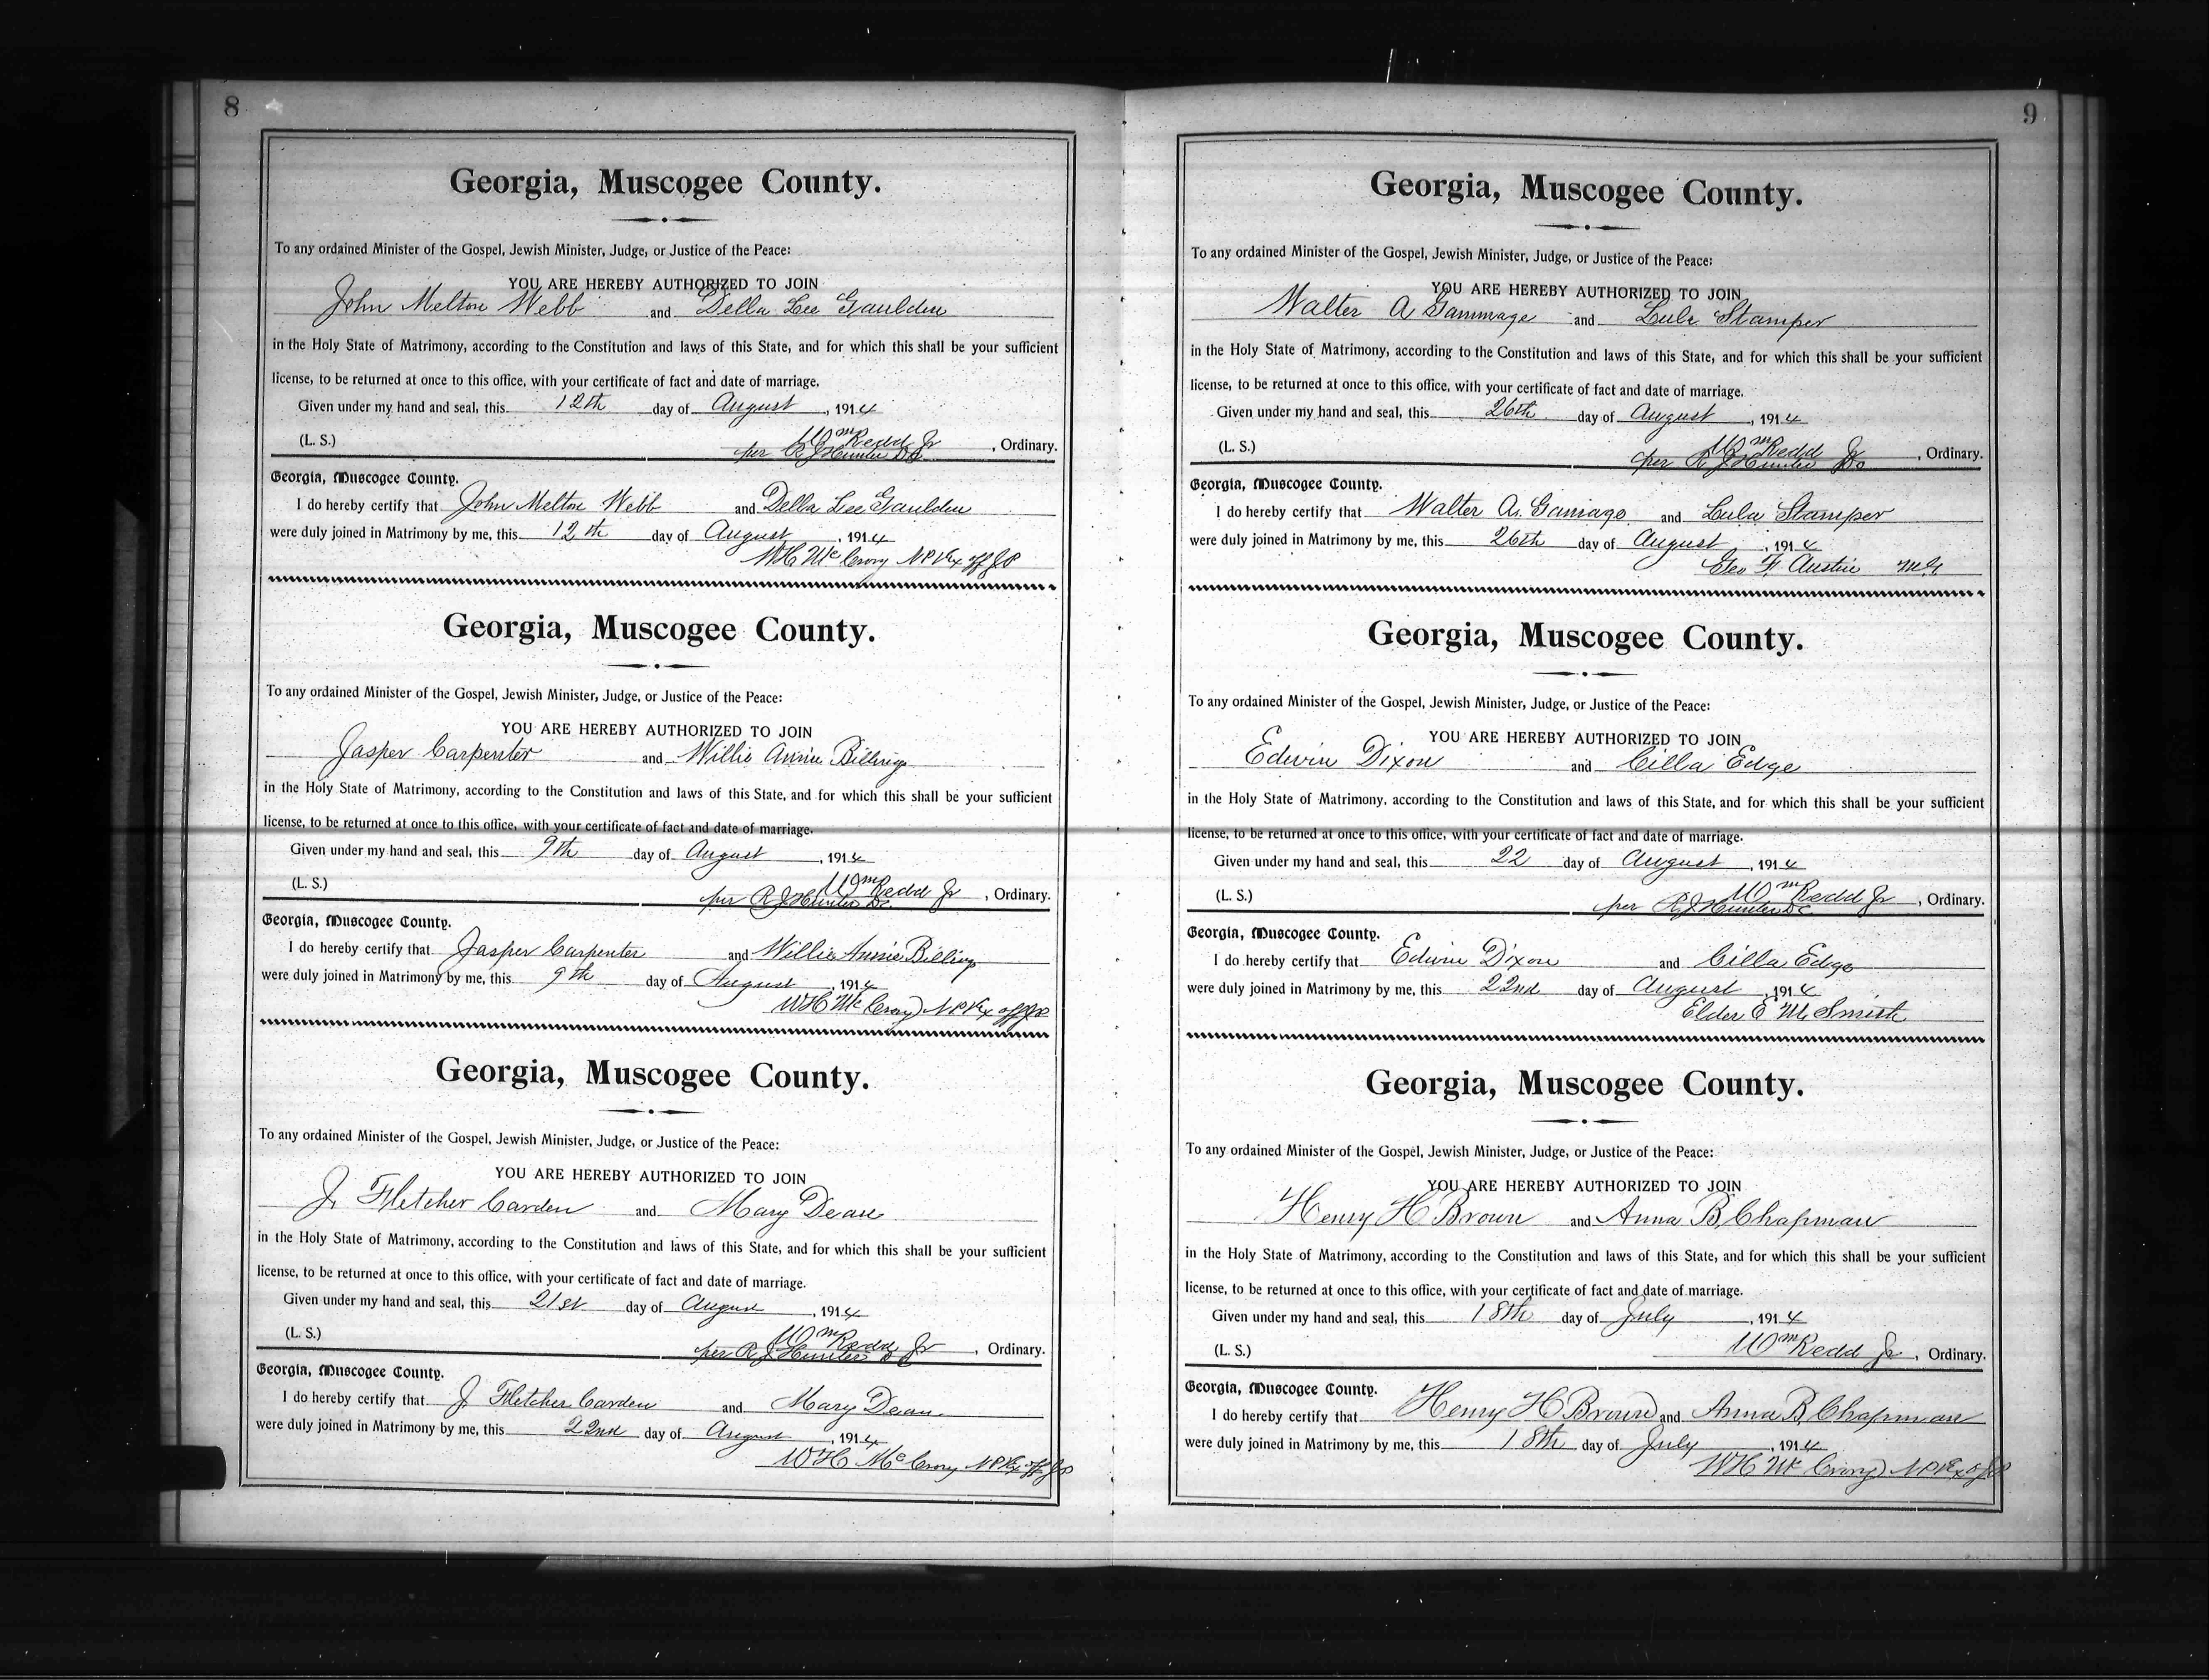 8
Georgia, Muscogee County.
To any ordained Minister of the Gospel, Jewish Minister, Judge, or Justice of the Peace:
YOU ARE HEREBY AUTHORIZED TO JOIN
John Melton Webb and Della Lee Gaulden
in the Holy State of Matrimony, according to the Constitution and laws of this State, and for which this shall be your sufficient
license, to be returned at once to this office, with your certificate of fact and date of marriage.
Given under my hand and seal, this 12th day of August, 1914
(L. S.) Wm Redd Jr, Ordinary.
per R J Hunter D C
Georgia, Muscogee County.
I do hereby certify that John Melton Webb and Della Lee Gaulden
were duly joined in Matrimony by me, this 12th day of August, 1914
WH McCrory NP & Ex off JP
Georgia, Muscogee County.
To any ordained Minister of the Gospel, Jewish Minister, Judge, or Justice of the Peace:
YOU ARE HEREBY AUTHORIZED TO JOIN
Jasper Carpenter and Willie Annie Billings
in the Holy State of Matrimony, according to the Constitution and laws of this State, and for which this shall be your sufficient
license, to be returned at once to this office, with your certificate of fact and date of marriage.
Given under my hand and seal, this 9th day of August, 1914
(L. S.) Wm Redd Jr, Ordinary.
per R J Hunter DC
Georgia, Muscogee County.
I do hereby certify that Jasper Carpenter and Willie Annie Billings
were duly joined in Matrimony by me, this 9th day of August, 1914
WH McCrory NP & Ex off JP
Georgia, Muscogee County.
To any ordained Minister of the Gospel, Jewish Minister, Judge, or Justice of the Peace:
YOU ARE HEREBY AUTHORIZED TO JOIN
J. Fletcher Carden and Mary Dean
in the Holy State of Matrimony, according to the Constitution and laws of this State, and for which this shall be your sufficient
license, to be returned at once to this office, with your certificate of fact and date of marriage.
Given under my hand and seal, this 21st day of August, 1914
(L. S.) Wm Redd Jr, Ordinary.
per R J Hunter D C
Georgia, Muscogee County.
I do hereby certify that J Fletcher Carden and Mary Dean
were duly joined in Matrimony by me, this 22nd day of August, 1914
WH McCrory NP & Ex off JP
9
Georgia, Muscogee County.
To any ordained Minister of the Gospel, Jewish Minister, Judge, or Justice of the Peace:
YOU ARE HEREBY AUTHORIZED TO JOIN
Walter A Gammage and Lula Stamper
in the Holy State of Matrimony, according to the Constitution and laws of this State, and for which this shall be your sufficient
license, to be returned at once to this office, with your certificate of fact and date of marriage.
Given under my hand and seal, this 26th day of August, 1914
(L. S.) Wm Redd Jr, Ordinary.
per R J Hunter
Georgia, Muscogee County.
I do hereby certify that Walter A. Gamage and Lula Stamper
were duly joined in Matrimony by me, this 26th day of August, 1914
Geo F. Austin MG
Georgia, Muscogee County.
To any ordained Minister of the Gospel, Jewish Minister, Judge, or Justice of the Peace:
YOU ARE HEREBY AUTHORIZED TO JOIN
Edwin Dixon and Cilla Edge
in the Holy State of Matrimony, according to the Constitution and laws of this State, and for which this shall be your sufficient
license, to be returned at once to this office, with your certificate of fact and date of marriage.
Given under my hand and seal, this 22 day of August, 1914
(L. S.) Wm Redd Jr, Ordinary.
per R J Hunter DC
Georgia, Muscogee County.
I do hereby certify that Edwin Dixon and Cilla Edge
were duly joined in Matrimony by me, this 22nd day of August, 1914
Elder E M Smith
Georgia, Muscogee County.
To any ordained Minister of the Gospel, Jewish Minister, Judge, or Justice of the Peace:
YOU ARE HEREBY AUTHORIZED TO JOIN
Henry H Brown and Anna B. Chapman
in the Holy State of Matrimony, according to the Constitution and laws of this State, and for which this shall be your sufficient
license, to be returned at once to this office, with your certificate of fact and date of marriage.
Given under my hand and seal, this 18th day of July, 1914
(L. S.) Wm Redd Jr, Ordinary.
Georgia, Muscogee County.
I do hereby certify that Henry H Brown and Anna B Chapman
were duly joined in Matrimony by me, this 18th day of July, 1914
WH McCrory NP & Ex off JP